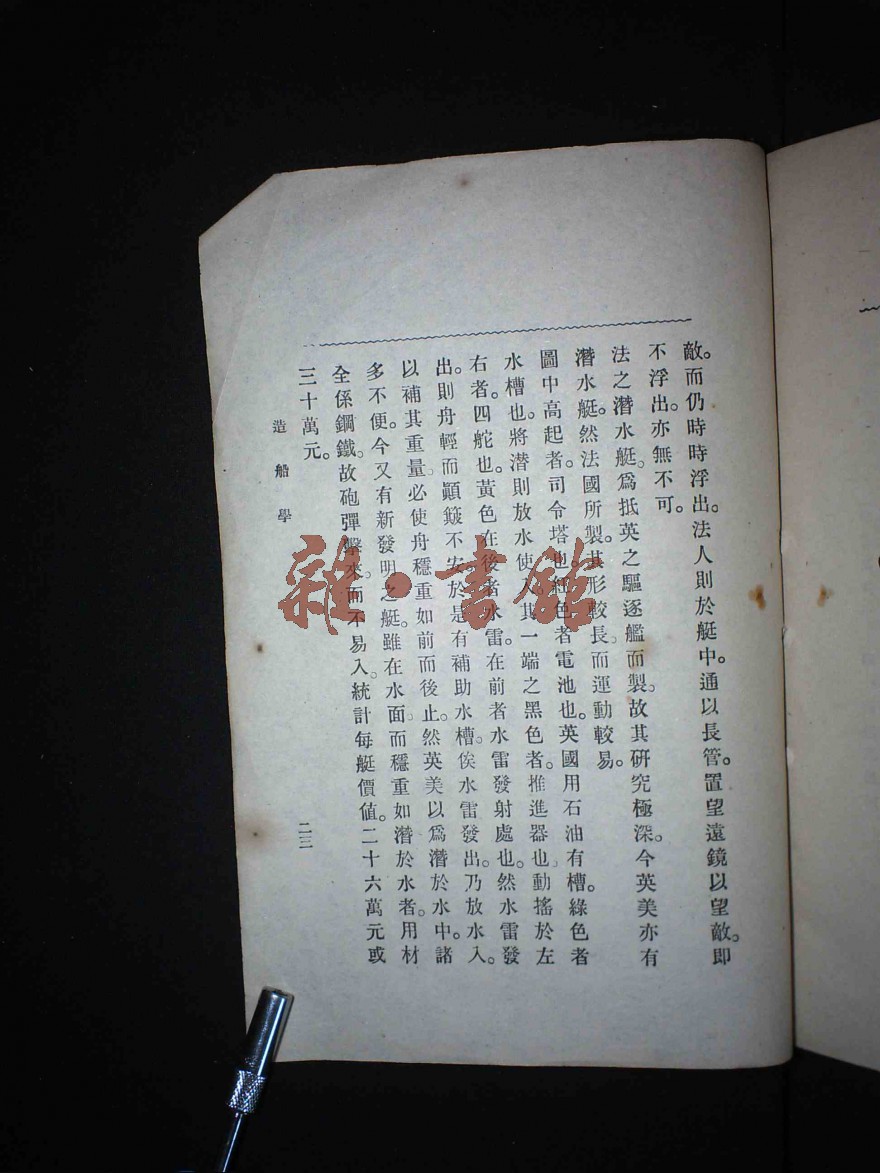 敵。而仍時時浮出。法人則於艇中。通以長管。置望遠鏡以望敵。即
不浮出。亦無不可。
法之潛水艇。爲抵英之驅逐艦而製。故其硏究極深。今英美亦有
潛水艇。然法國所製。其形較長。而運動較易。
圖中高起者。司令塔也。紅色者電池也。英國用石油有槽。綠色者
水槽也。將潛則放水使入。其一端之黑色者。推進器也。動搖於左
右者。四舵也。黃色在後者水雷。在前者水雷發射處也。然水雷發
出。則舟輕而顚簸不安。於是有補助水槽。俟水雷發出。乃放水入。
以補其重量。必使舟穩重如前而後止。然英美以爲潛於水中。諸
多不便。今又有新發明之艇。雖在水面。而穩重如潛於水者。用材
全係鋼鐵。故砲彈擊來。而不易入。統計每艇價値。二十六萬元或
三十萬元。
造船學
二三
雜·書館